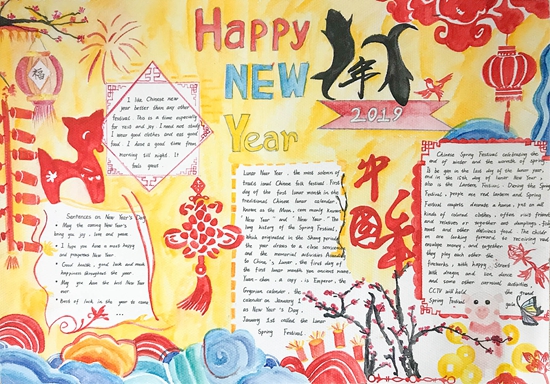 Happy
NEW
Year
2019
福
年
中國年
I like Chinese new
year better than any other
festival. This is a time especially
for rest and joy. I need not study
I wear good clothes and eat good
food. I have a good time from
morning till night. It
feels great
Sentences on New Year's Day
• May the coming New Year's
bring you joy, love and peace
• I hope you have a most happy
and prosperous New Year
• Good health, good luck and much
happiness throughout the year
• May you have the best New Year
ever
• Best of luck in the year to come
Lunar New Year, the most solemn of
traditional Chinese folk festival. First
day of the first lunar month in the
traditional Chinese lunar calendar,
known as the Moon, commonly known
"New Year" and "New Year". The
long history of the Spring Festival,
which originated in the Shang period
the year draws to a close sacrifices
and the memorial activities Ancestor
to China's Lunar, the first day of
the first lunar month by ancient name,
Yuan-chen, a copy is Emperor, the
Gregorian calendar, the
calendar on January 1
as New Year's Day,
January 1st called the Lunar
Spring Festival.
Chinese Spring Festival celebrating the
end of winter and the warmth of spring
It began in the last day of the lunar year,
end in the 15th day of lunar New Year,
also is the Lantern Festival. During the Spring
Festival, people use red lantern and Spring
Festival couplets decorate a home, put on all
kinds of colored clothes, often visit friends
and relatives or together eat dumplings, fish,
meat and other delicious food. The children
are looking forward to receiving red
envelope money, and together
they play each other the
fireworks, with happy. Street
with dragon and lion dance
and some other carnival activities,
CCTV will held the Grand
Spring Festival gala